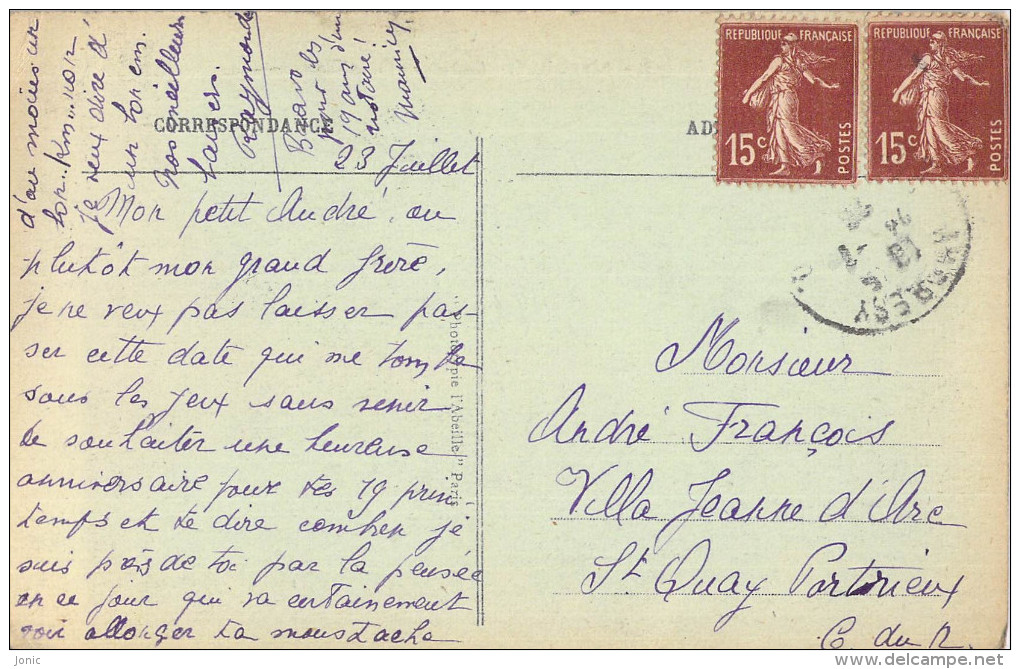 CORRESPONDANCE
23 Juillet
Mon petit André, ou
plutôt mon grand frère,
je ne veux pas laisser pas-
ser cette date qui me tombe
sous les yeux sans venir
te souhaiter une heureuse
anniversaire pour tes 19 prin
temps et te dire combien je
suis près de toi par la pensée
en ce jour qui va certainement
voir allonger ta moustache
d'au moins un
bon
je veux dire d
un bon cm.
Nos meilleurs
baisers.
Raymonde
Bravo
pour les
19 ans d'un
notaire!
Maurice
"Phototypie l'Abeille" Paris
AD
REPUBLIQUE FRANÇAISE
15c
POSTES
REPUBLIQUE FRANÇAISE
15c
POSTES
Monsieur
André François
Villa Jeanne d'Arc
St Quay Portrieux
C. du N.
Jonic
www.delcampe.net